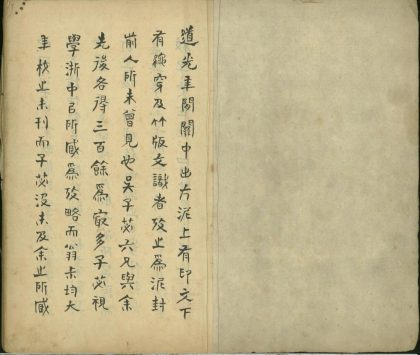 道光秊閒關中出片泥上有印文下
有繩穿及竹版文識者攷㞢爲泥封
前人所未曾見也吳子苾六兄與余
先後各得三百餘爲㝡多子苾視
學浙中㠯所臧爲攷略而翁尗均大
秊校㞢未刊而子苾沒未及余㞢所臧